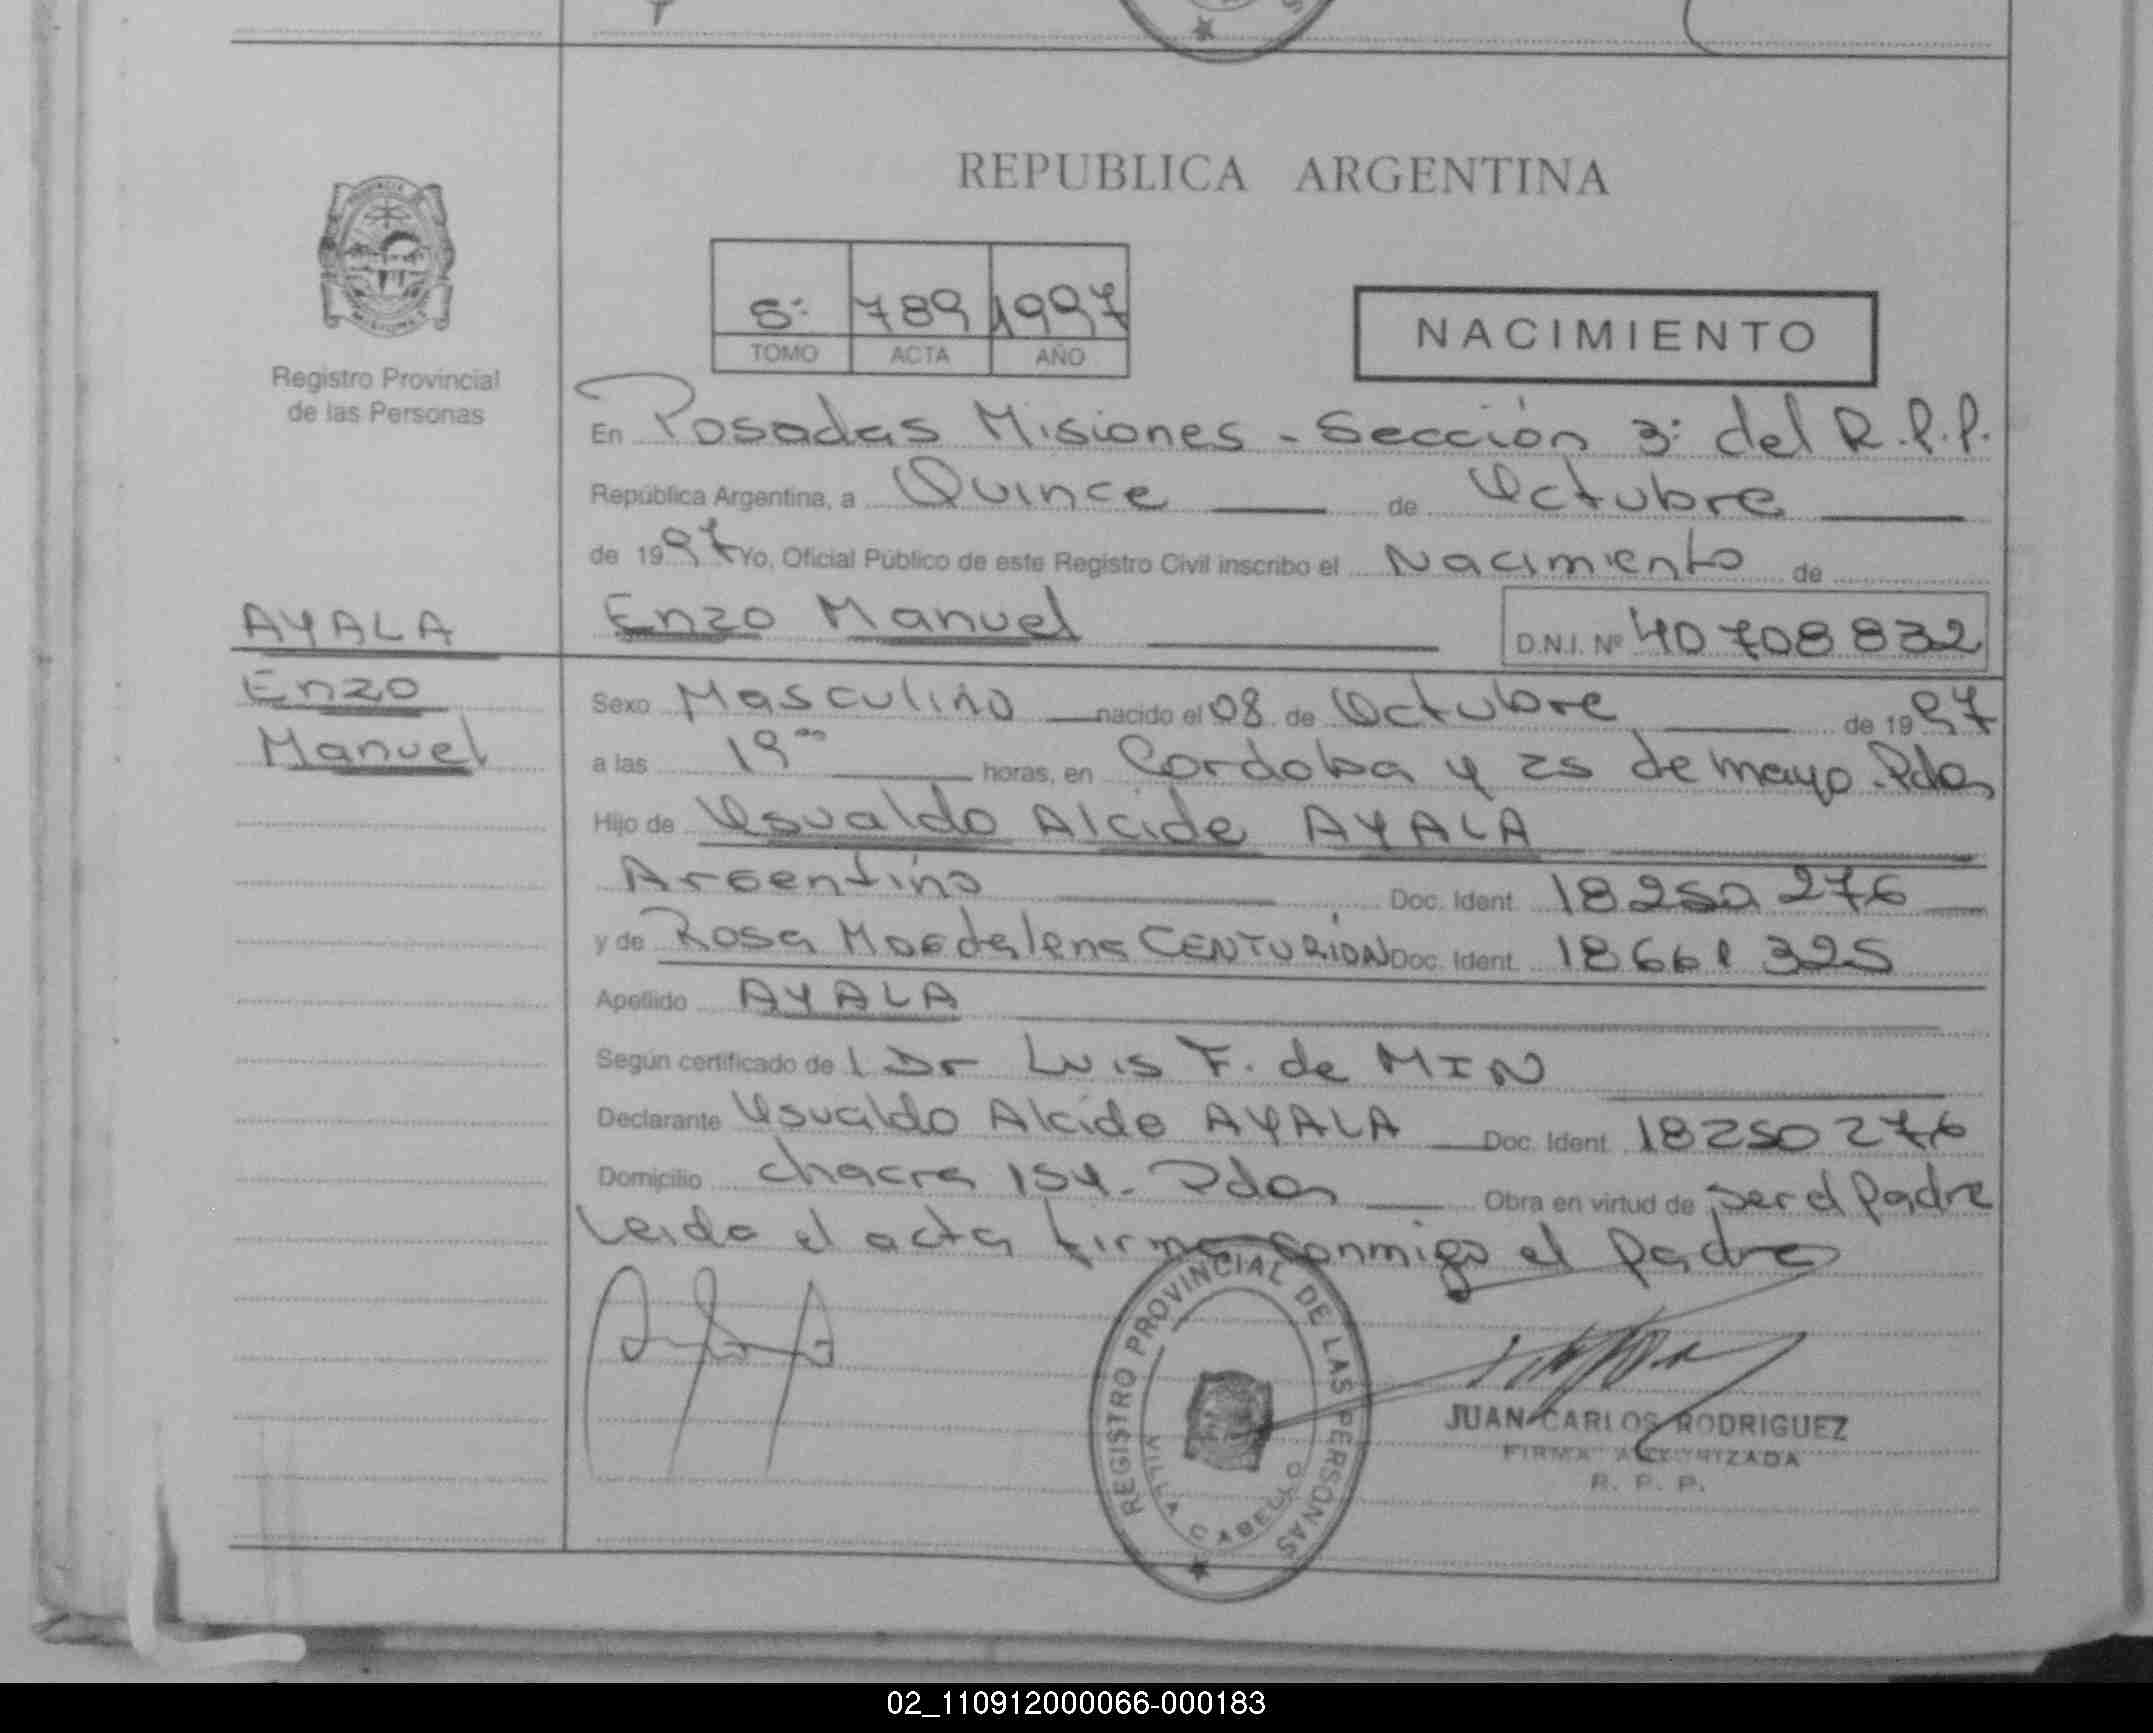 REPUBLICA ARGENTINA
Registro Provincial
de las Personas
789 1997
TOMO ACTA AÑO
NACIMIENTO
En Posadas Misiones - Sección 3: del R.P.P.
República Argentina, a Quince de Octubre
de 1997 Yo, Oficial Público de este Registro Civil inscribo el Nacimiento de
AYALA
Enzo
Manuel
Enzo Manuel D.N.I. Nº 40708832
Sexo Masculino nacido el 08 de Octubre de 1997
a las 19⁰⁰ horas, en Cordoba y 25 de mayo. Pdas
Hijo de Osvaldo Alcide AYALA
Argentino Doc. Ident. 18250276
y de Rosa Magdalena CENTURIÓN Doc. Ident. 18661325
Apellido AYALA
Según certificado de l Dr Luis F. de MIN
Declarante Osvaldo Alcide AYALA Doc. Ident. 18250276
Domicilio chacra 154. Pdas Obra en virtud de ser el Padre
Leida el acta firma conmigo el padre
REGISTRO PROVINCIAL DE LAS PERSONAS
VILLA CABELLO
JUAN CARLOS RODRIGUEZ
FIRMA AUTORIZADA
R. P. P.
02_110912000066-000183